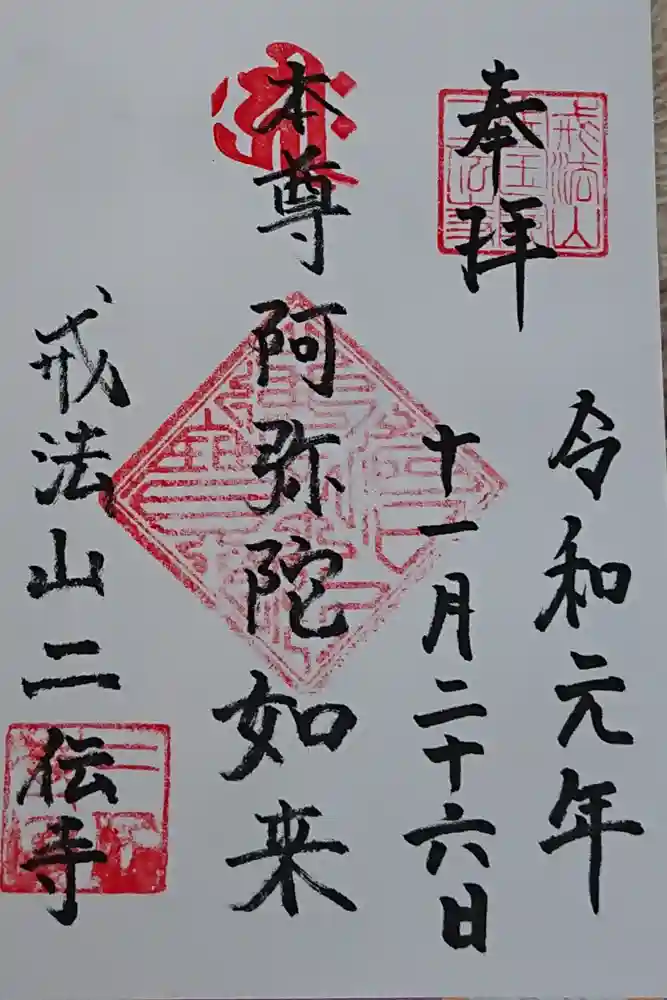 奉拝
令和元年
十一月二十六日
本尊阿弥陀如来
戒法山二伝寺
戒法山